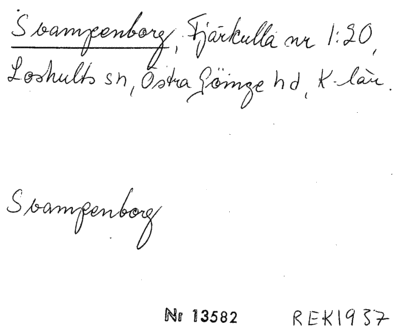 Svampenborg, Fjärkulla nr 1:20,
Loshults sn, Östra Göinge hd, K-län.
Svampenborg
Nr 13582 REK1937